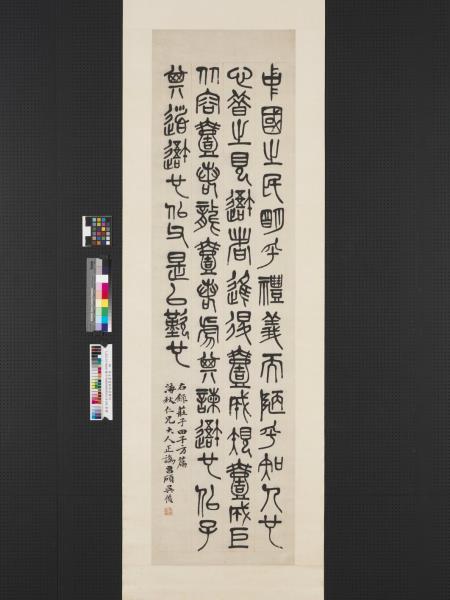 中國之民明乎禮義而陋乎知人
心昔之見我者進退壹成規壹成巨
从容壹若龍壹若虎其諫我也似子
其道我也似父是以歎也
右錄莊子田子方篇
海秋仁兄大人正譌昌碩吳俊